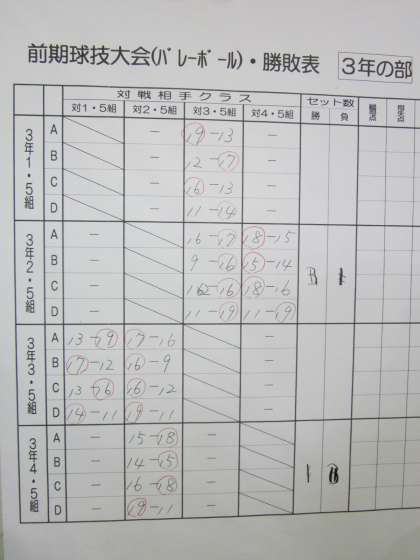 前期球技大会(ﾊﾞﾚｰﾎﾞｰﾙ)・勝敗表 3年の部
対戦相手クラス セット数
対1・5組 対2・5組 対3・5組 対4・5組 勝 負
3年1・5組
A - 19-13 -
B - 12-17 -
C - 16-13 -
D - 11-14 -
3年2・5組
A - 16-17 18-15
B - 9-16 15-14
C - 12-16 18-16
D - 11-19 11-19
3年3・5組
A 13-19 17-16 -
B 17-12 16-9 -
C 13-16 16-12 -
D 14-11 19-11 -
3年4・5組
A - 15-18 -
B - 14-15 -
C - 16-18 -
D - 19-11 -